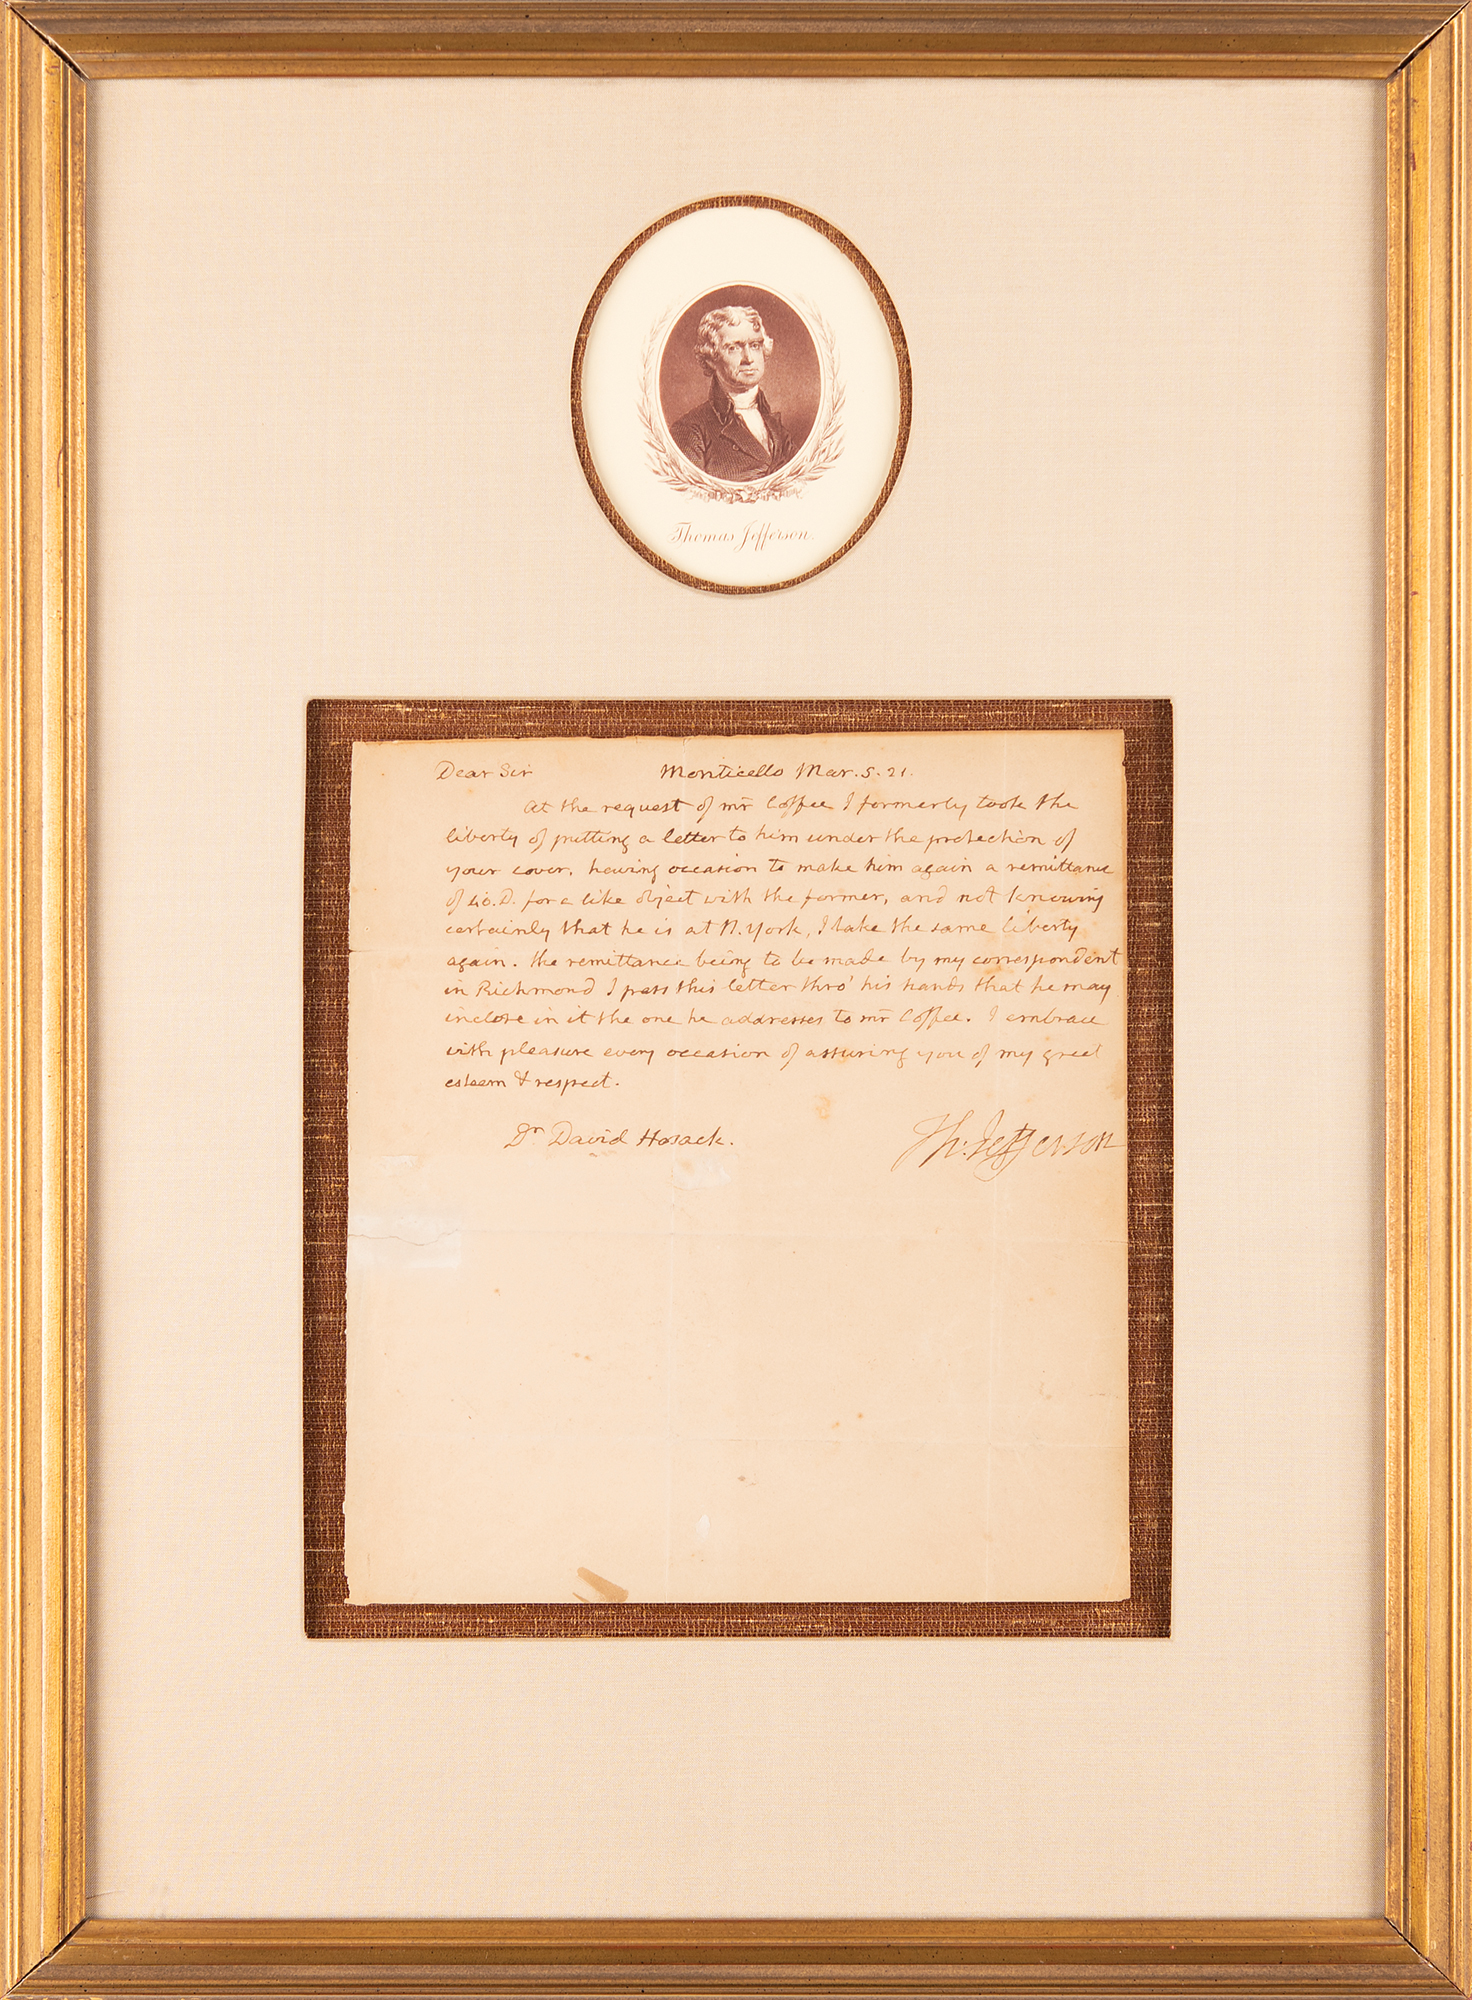 Thomas Jefferson.
Dear Sir Monticello Mar. 5. 21.
At the request of mr Coffee I formerly took the
liberty of putting a letter to him under the protection of
your cover. having occasion to make him again a remittance
of 40. D. for a like object with the former, and not knowing
certainly that he is at N. York, I take the same liberty
again. the remittance being to be made by my correspondent
in Richmond I pass this letter thro' his hands that he may
inclose in it the one he addresses to mr Coffee. I embrace
with pleasure every occasion of assuring you of my great
esteem & respect.
Dr David Hosack. Th: Jefferson